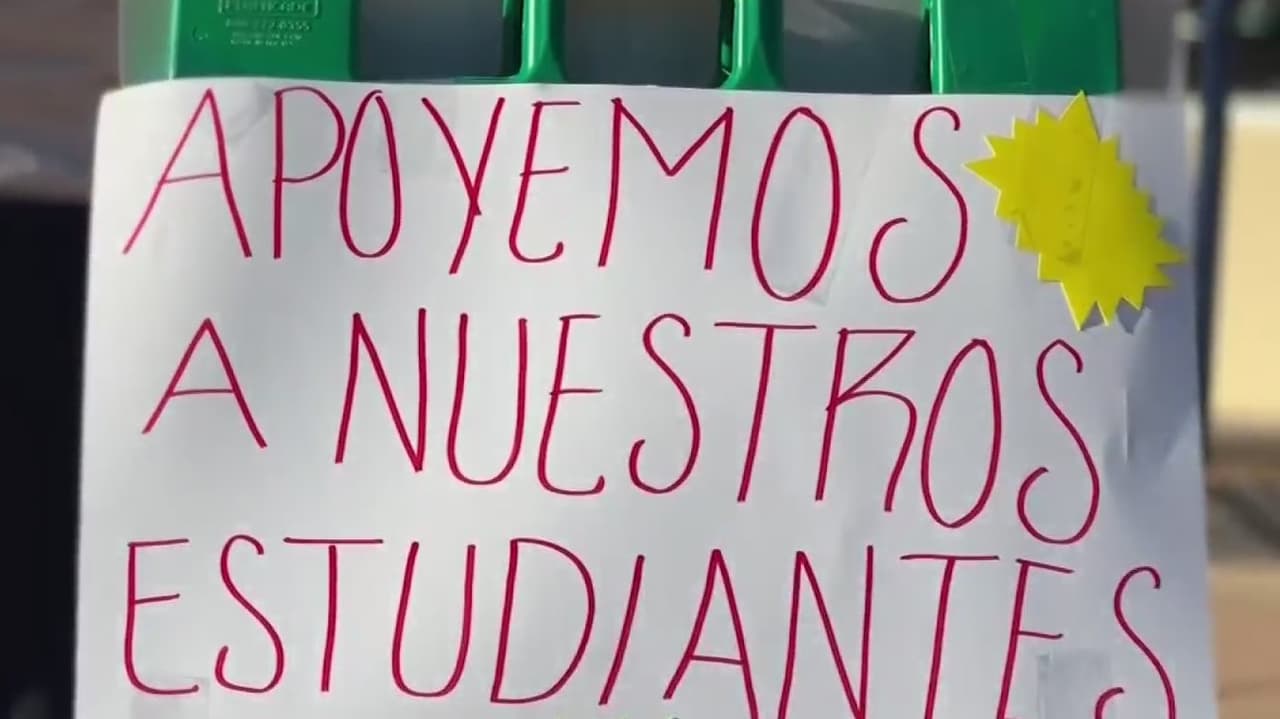 APOYEMOS
A NUESTROS
ESTUDIANTES